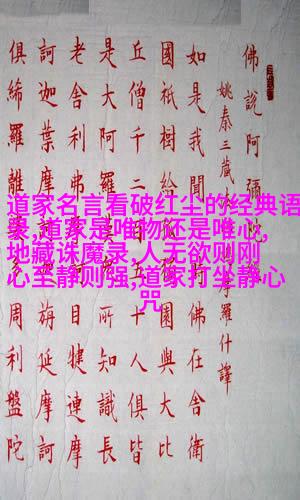 道家名言看破红尘的经典语
录,道家是唯物还是唯心,
地藏诛魔录,人无欲则刚
心至静则强,道家打坐静心
咒
佛說阿彌
姚秦三藏摩羅什譯
如是我聞佛在舍衛
國祇樹給園與大比
丘僧千二人俱皆
是大阿羅所知識長
老舍利弗目犍連摩
訶迦葉摩旃延摩訶
俱絺羅離周利盤陀